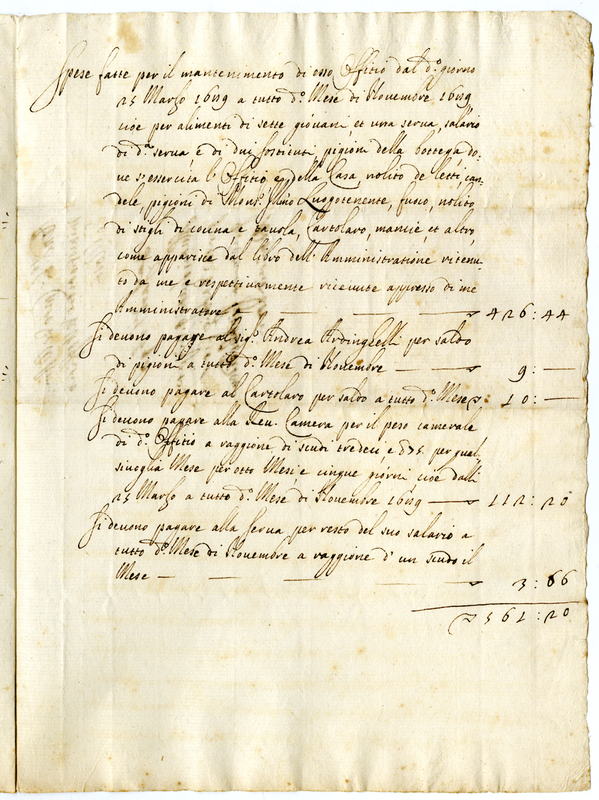 Spese fatte per il mantenimento di esso Offitio dal d.º giorno
25 Marzo 1689 a tutto d.º Mese di Novembre 1689
cioè per alimenti di sette giovani, et una serva, salario
di d.ª serva e di dui sostituti pigioni della bottega do-
ve s'essercita l'Offitio e della Casa nolito de letti, can-
dele, pigioni di Mons.r Illmo Luogotenente, fuoco, nolito
di stigli di cocina, e tavola, Cartolaro, mancie, et altro,
come apparisce dal libro dell'Amministratione ritenu-
to da me e respettivamente ricevute appresso di me
Amministratore a — 426:44
Si devono pagare al Sig.r Andrea Ardinghelli per saldo
di pigioni a tutto d.º Mese di Novembre — 9:—
Si devono pagare al Cartolaro per saldo a tutto d.º Mese 10:—
Si devono pagare alla Rev. Camera per il peso camerale
di d.º Offitio a raggione di scudi tredeci e per qual
sivoglia Mese per otto Mesi e cinque giorni cioè dalli
25 Marzo a tutto d.º Mese di Novembre 1689 — 112:20
Si devono pagare alla serva per resto del suo salario a
tutto d.º Mese di Novembre a raggione d'un scudo il
Mese — 3:66
561:20